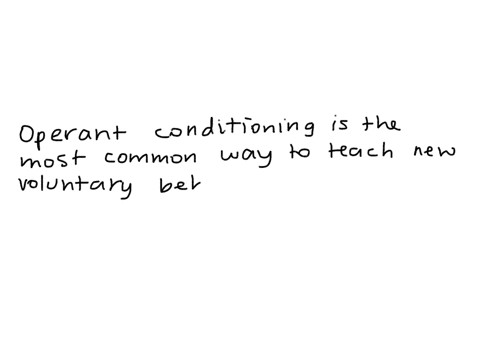 Operant conditioning is the
most common way to teach new
voluntary